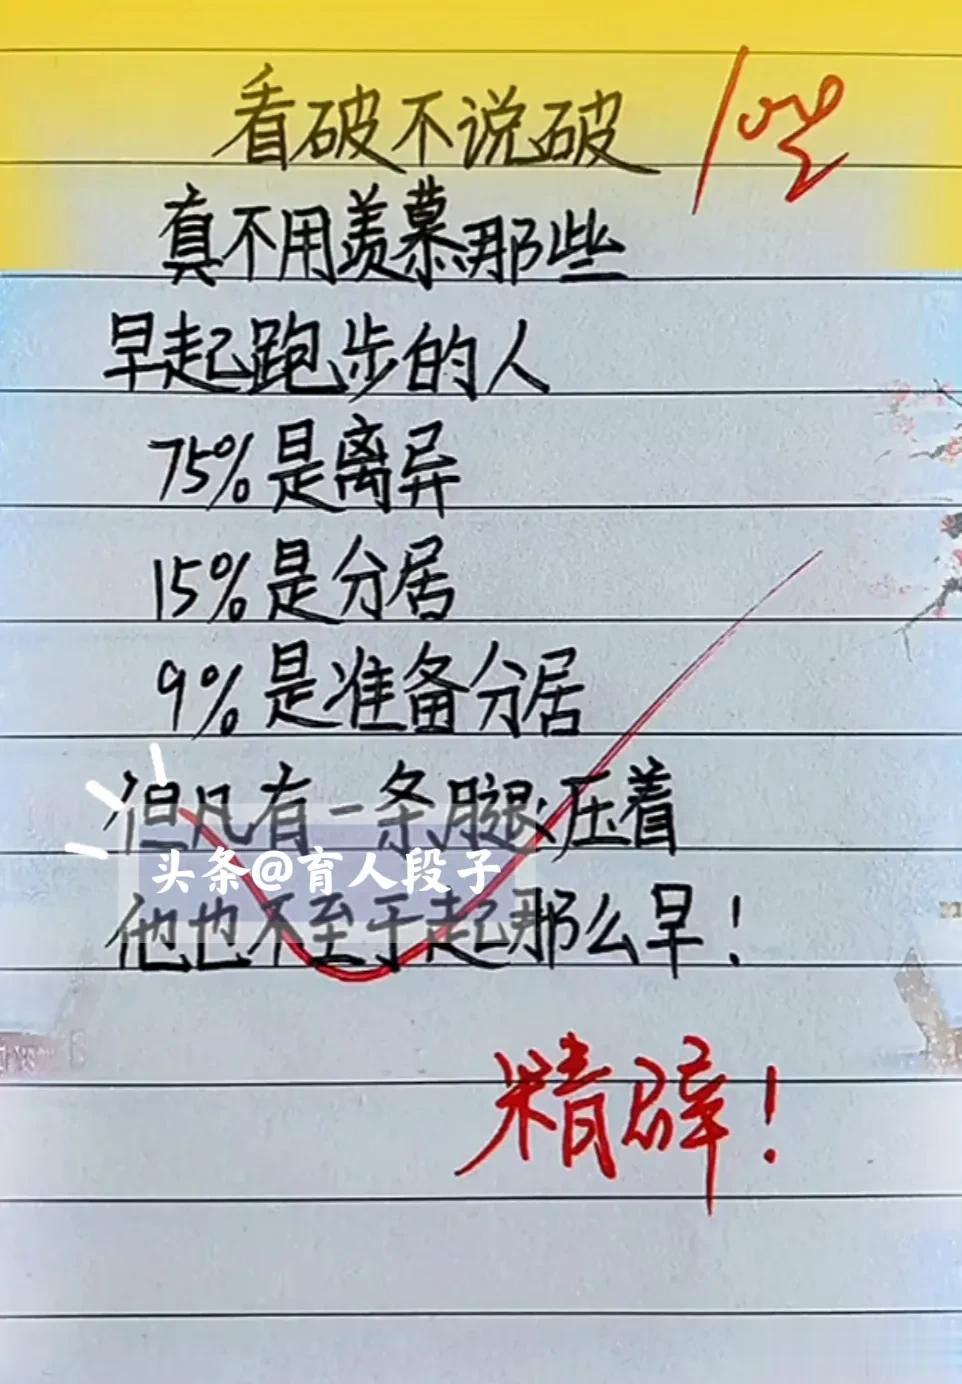 看破不说破
100
真不用羡慕那些
早起跑步的人
75%是离异
15%是分居
9%是准备分居
但凡有一条腿压着
头条@育人段子
他也不至于起那么早!
精辟!